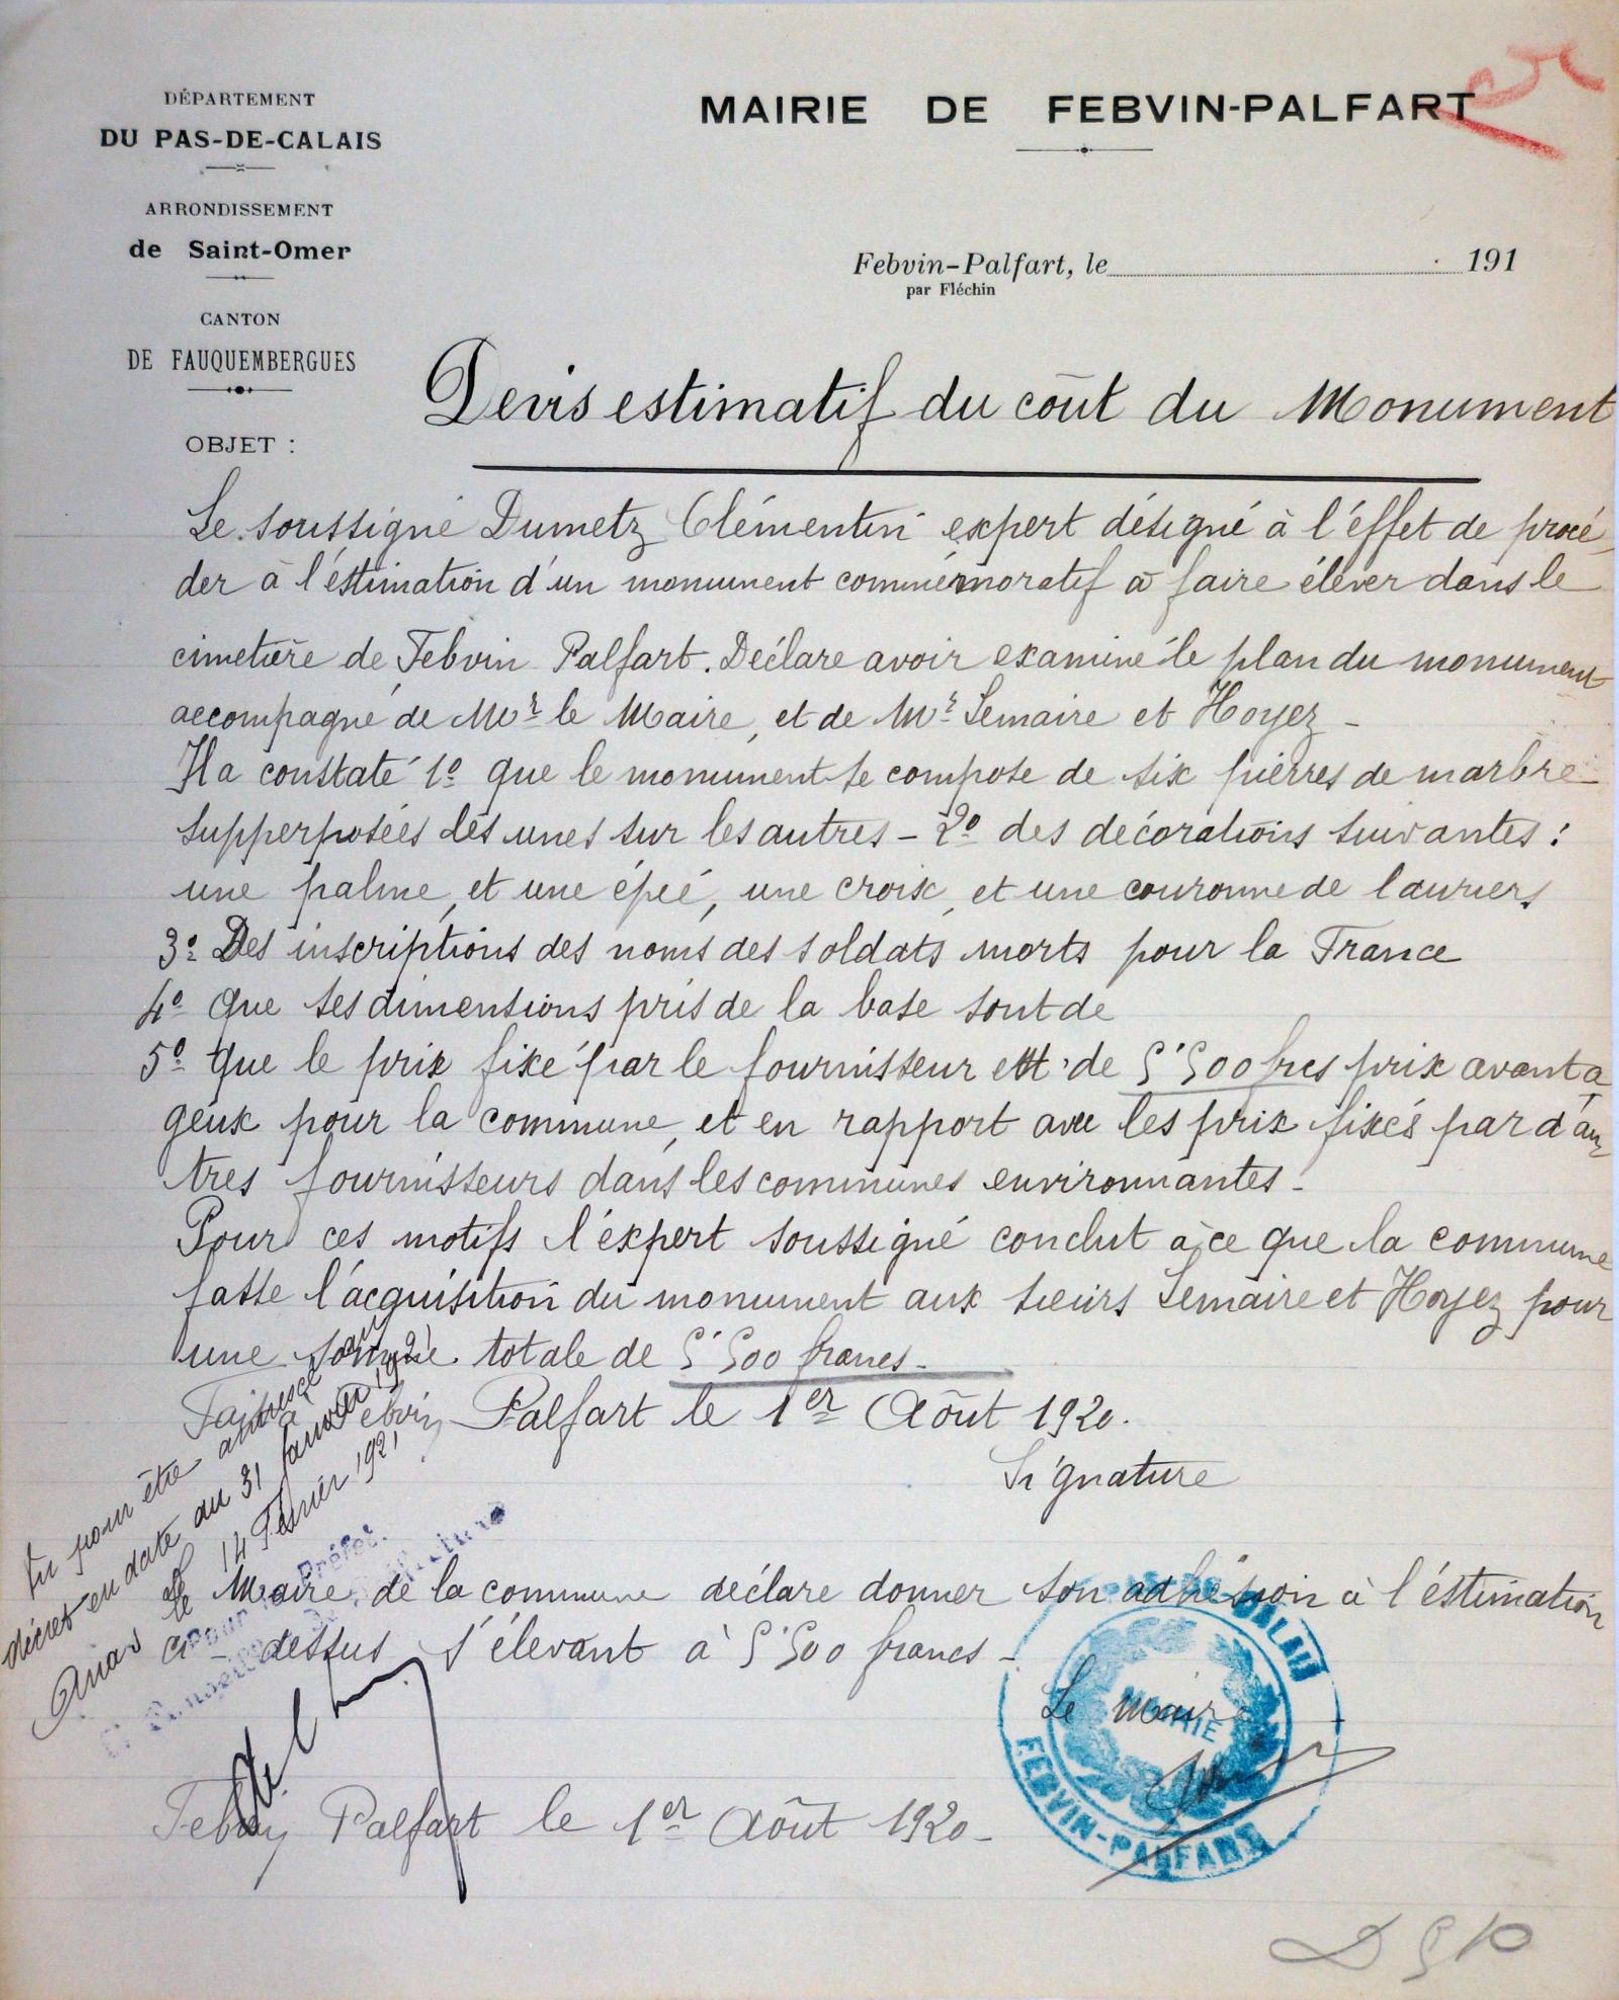 DÉPARTEMENT
DU PAS-DE-CALAIS
ARRONDISSEMENT
de Saint-Omer
CANTON
DE FAUQUEMBERGUES
OBJET :
MAIRIE DE FEBVIN-PALFART
Febvin-Palfart, le 191
par Fléchin
Devis estimatif du coût du Monument
Le soussigné Dumetz Clémentin expert désigné à l'éffet de procé
der à l'éstimation d'un monument commémoratif à faire élever dans le
cimetière de Febvin Palfart. Déclare avoir examiné le plan du monument
accompagné de Mr le Maire, et de Mr Lemaire et Hoyez -
Il a constaté 1º que le monument se compose de six pierres de marbre
supperposées les unes sur les autres - 2º des décorations suivantes :
une palme, et une épeé, une croix, et une couronne de lauriers
3º Des inscriptions des noms des soldats morts pour la France
4º que ses dimensions pris de la base sont de
5º que le prix fixé par le fournisseur est de 5'500 frcs prix avanta
geux pour la commune, et en rapport avec les prix fixés par d'au
tres fournisseurs dans les communes environnantes -
Pour ces motifs l'éxpert soussigné conclut à ce que la commune
fasse l'acquisition du monument aux sieurs Lemaire et Hoyez pour
une somme totale de 5'500 francs -
Fait à Febvin Palfart le 1er Août 1920.
Signature
Vu pour être annexé au
décret en date du 31 Janvier 1921
Arras le 14 Février 1921
Pour le Préfet
Le Maire de la commune déclare donner son adhésion à l'éstimation
ci-dessus s'élevant à 5'500 francs -
Le Maire
MAIRIE
FEBVIN-PALFART
Febvin Palfart le 1er Août 1920 -